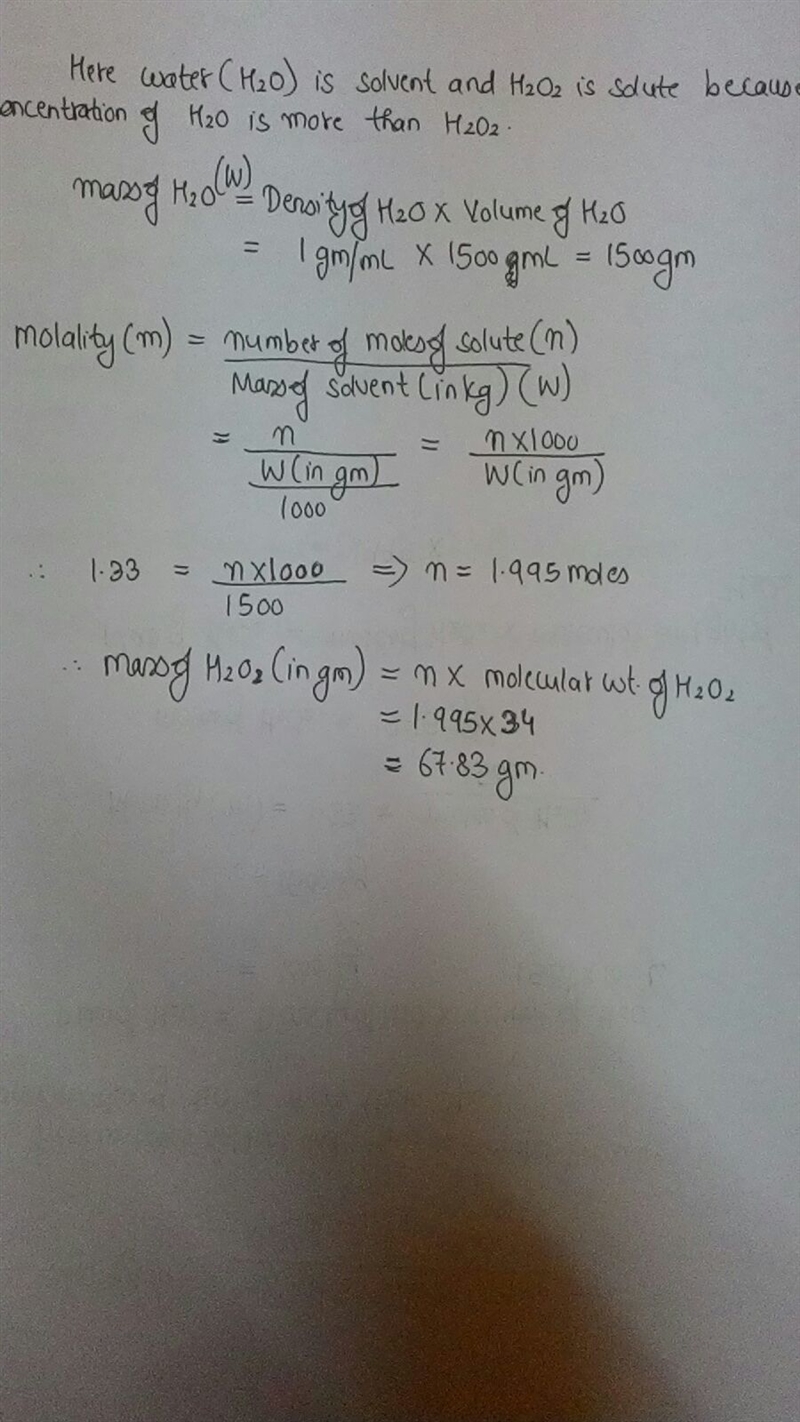 Here water (H2O) is solvent and H2O2 is solute because
oncentration of H2O is more than H2O2.
mass of H2O (W) = Density of H2O X Volume of H2O
= 1 gm/mL X 1500 mL = 1500 gm
Molality (m) = number of moles of solute (n)
Mass of solvent (in kg) (W)
= n = n X 1000
W (in gm) W (in gm)
1000
∴ 1.33 = n X 1000 => n = 1.995 moles
1500
∴ mass of H2O2 (in gm) = n X molecular wt. of H2O2
= 1.995 X 34
= 67.83 gm.